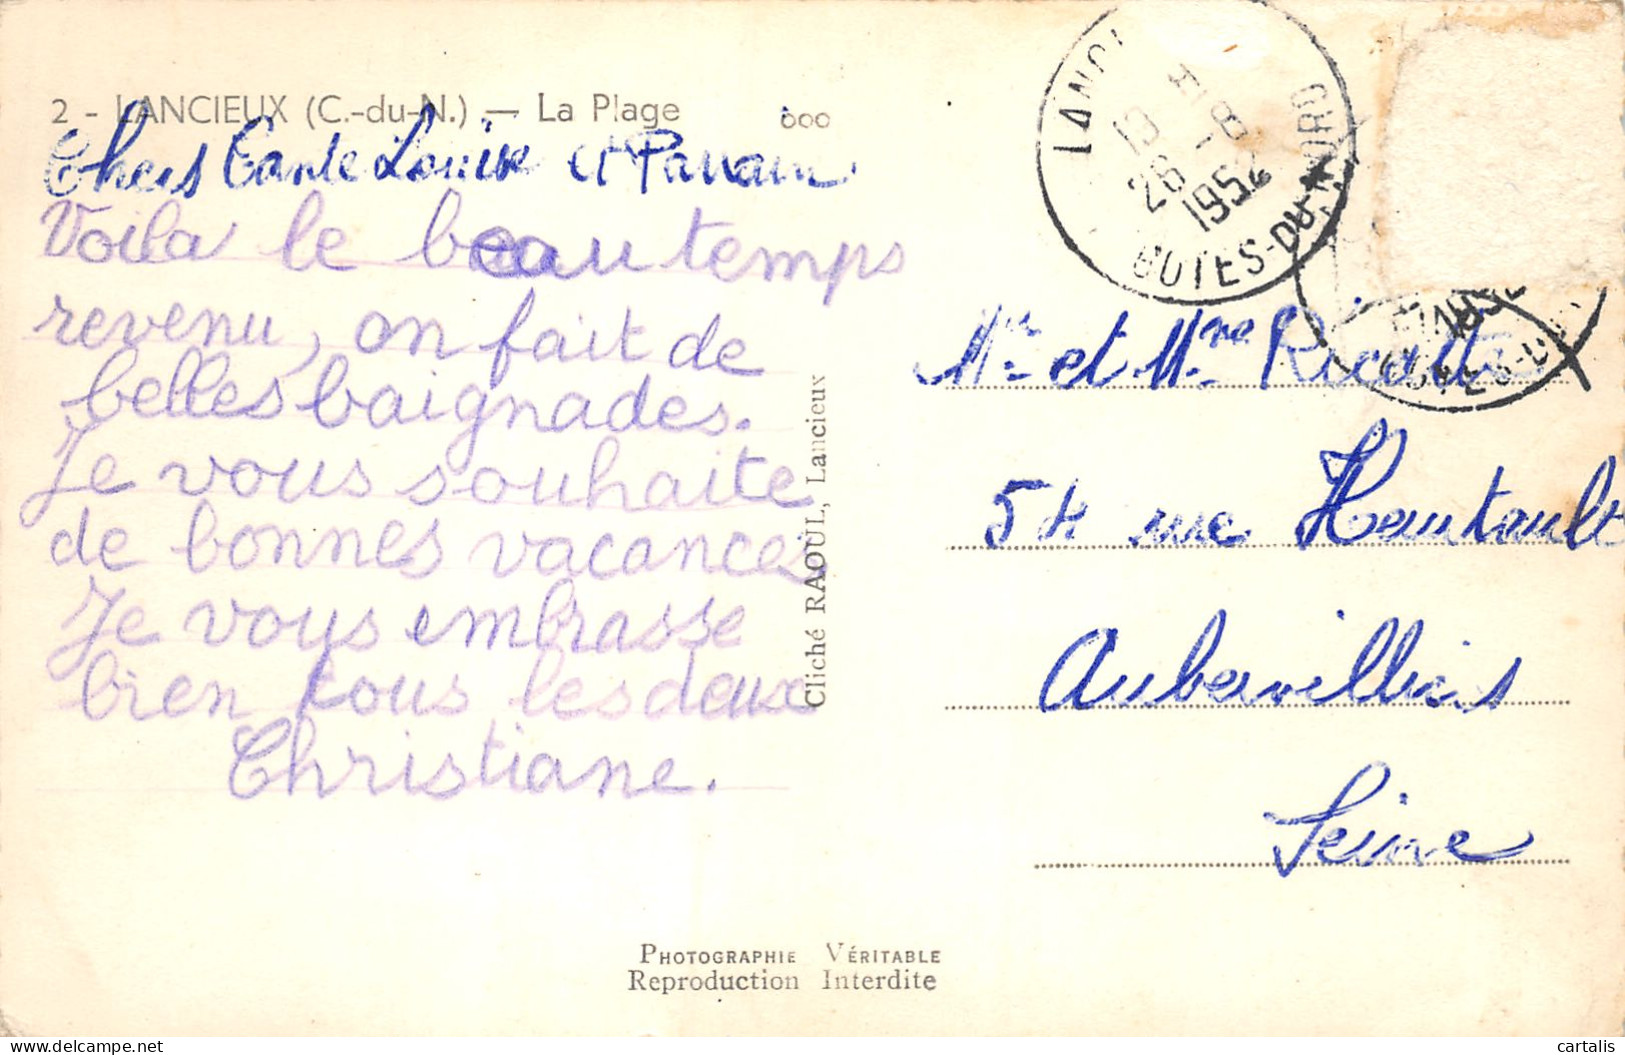 2 - LANCIEUX (C.-du-N.) — La Plage
Chers Tante Louise et Parrain
Voila le beau temps
revenu, on fait de
belles baignades.
Je vous souhaite
de bonnes vacances
Je vous embrasse
bien tous les deux
Christiane.
Cliché RAOUL, Lancieux
13 H 8
26 -8
1952
COTES-DU-NORD
Mr et Mme Ricott
54 rue Heurtault
Aubervilliers
Seine
PHOTOGRAPHIE VÉRITABLE
Reproduction Interdite
delcampe.net
cartalis